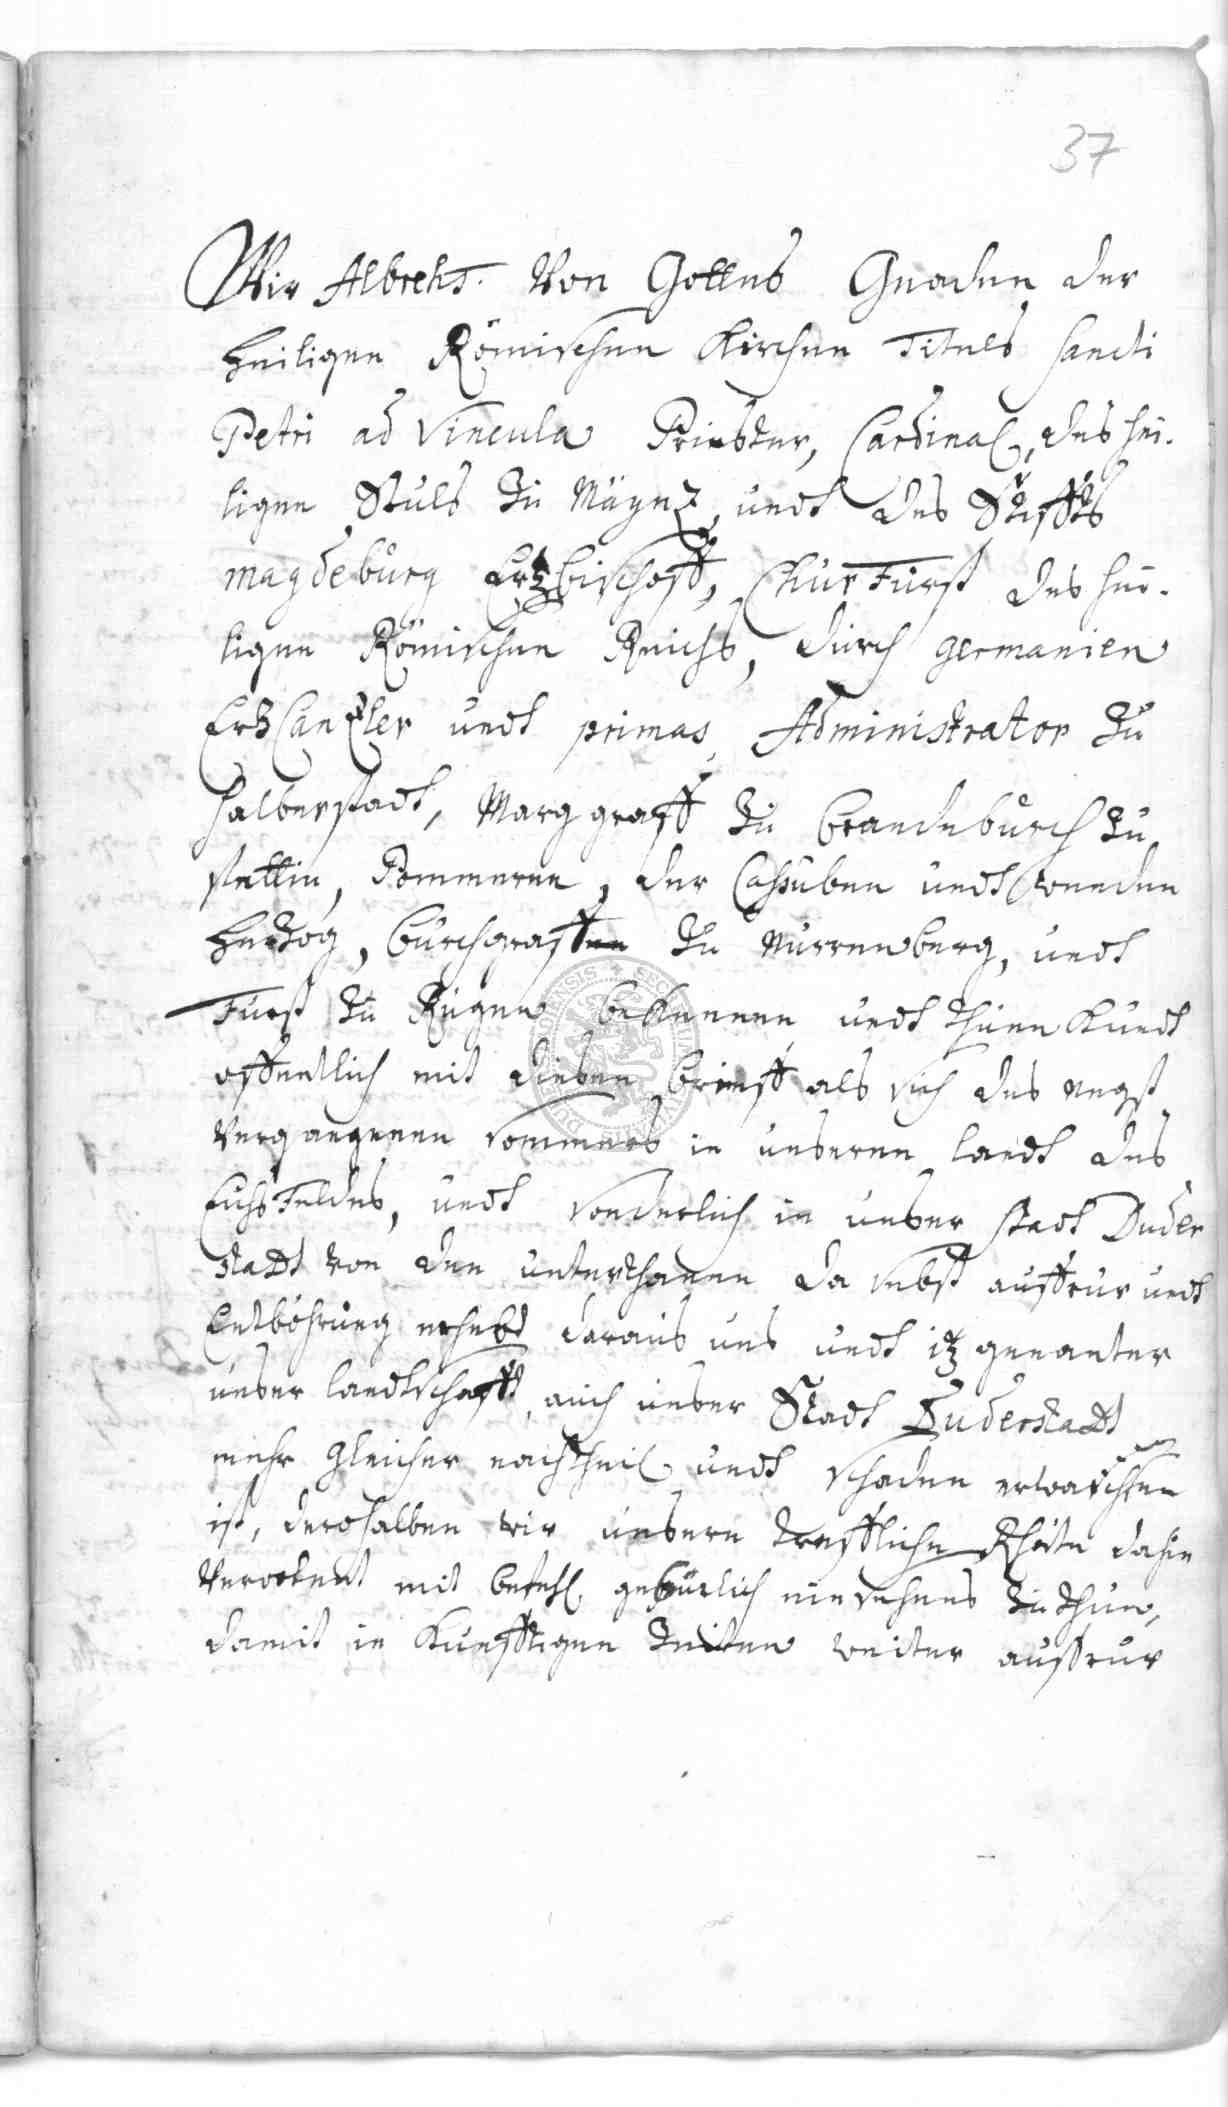 37
Wir Albrecht. Von Gottes Gnaden der
Heiligen Römischen Kirchen Tituls Sancti
Petri ad Vincula Priester, Cardinal, des hei-
ligen Stuls zu Mäyntz, undt des Stiffts
Magdeburg Ertzbischoff, ChurFürst des hei-
ligen Römischen Reichs, durch germanien
ErtzCantzler undt primas, Administrator zu
Halberstadt, Marggraff zu Brandeburch zu
stettin, Pommeren, der Cassuben undt wenden
Hertzog, Burchgraffen zu Nurrenberg, undt
Fürst zu Rügen bekennen undt thuen Kundt
offentlich mit diesen brieff als sich des negst
Vergangenen Sommers in unseren landt des
Eichsfeldes, undt sonderlich in unser stadt Duder
stadt von den unterthanen da selbst auffrur undt
Entböhrung erhebt daraus uns undt itz genanter
unser landtschafft, auch unser Stadt Duderstadt
mehr gleicher nachtheil undt schaden erwachsen
ist, derohalben wir unsere treffliche Rhäte dahin
Verordent mit befehl gebürlich einsehens zu thun,
damit in Kunfftigen Zeiten weiter auffrur